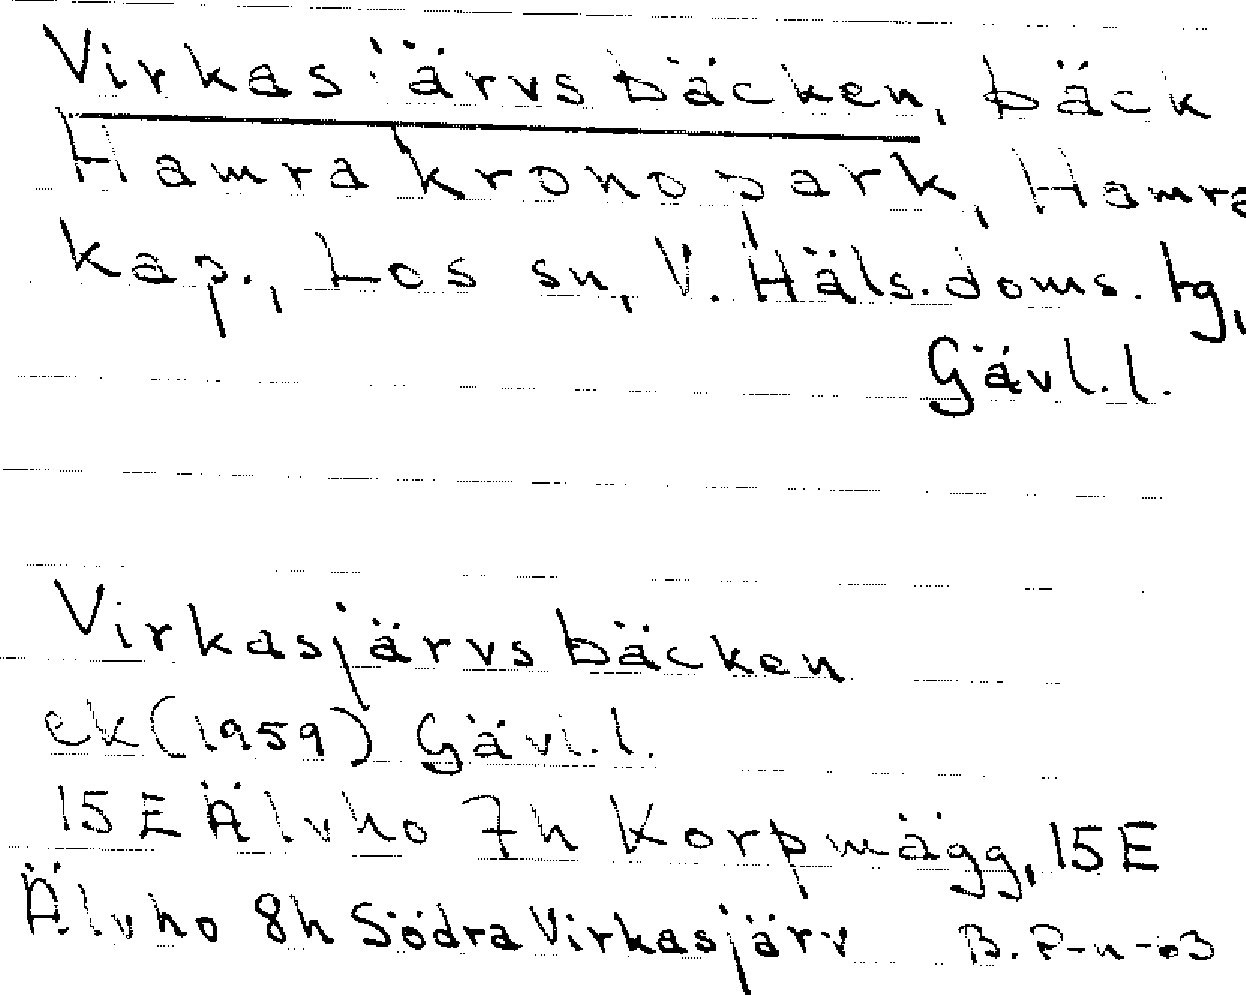 Virkasjärvsbäcken, bäck
Hamra kronopark, Hamra
kap., Los sn, V. Häls. doms. tg,
Gävl. l.
Virkasjärvsbäcken
ek (1959) Gävl. l.
15 E Älvho 7h Korpmägg, 15 E
Älvho 8h Södra Virkasjärv B. P-n-03